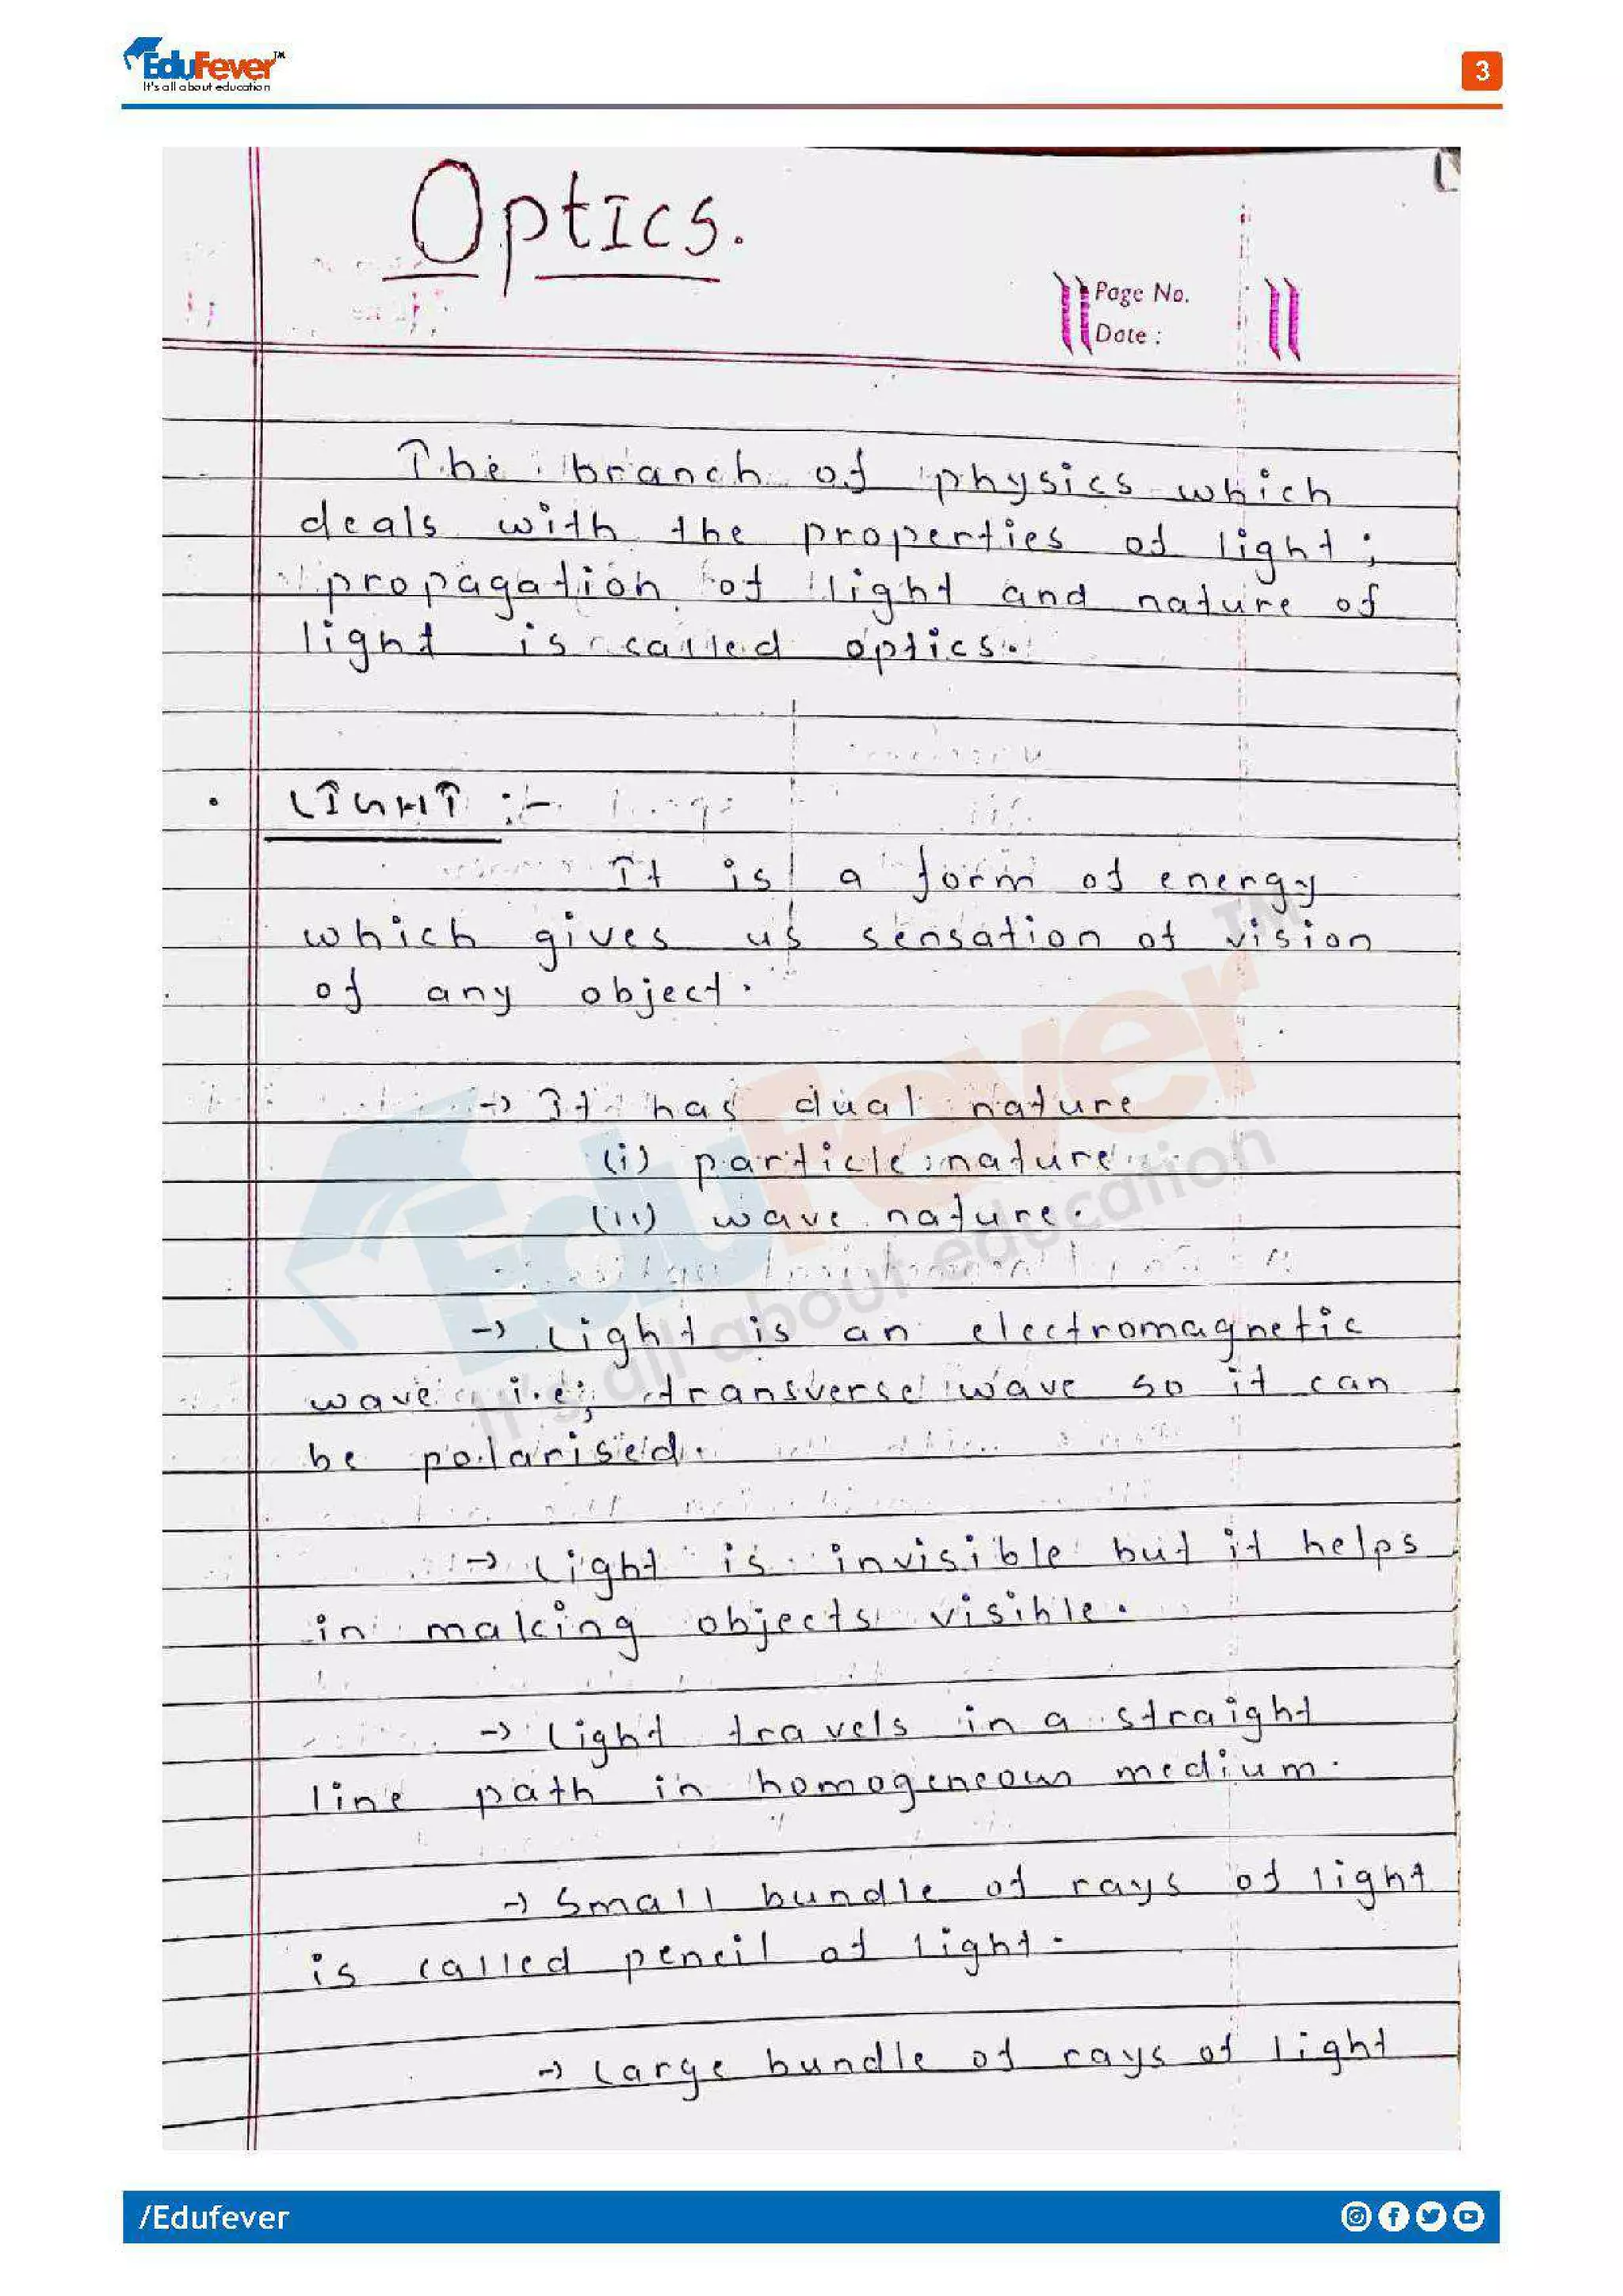 EduFever™
It's all about education
3
Optics.
Page No.
Date :
The branch of physics which
deals with the properties of light;
propagation of light and nature of
light is called optics.
• LIGHT :-
It is a form of energy
which gives us sensation of vision
of any object.
→ It has dual nature
(i) particle nature
(ii) wave nature.
→ Light is an electromagnetic
wave i.e; transverse wave so it can
be polarised.
→ Light is invisible but it helps
in making objects visible.
→ Light travels in a straight
line path in homogeneous medium.
→ Small bundle of rays of light
is called pencil of light.
→ Large bundle of rays of light
EduFever™
It's all about education
/Edufever